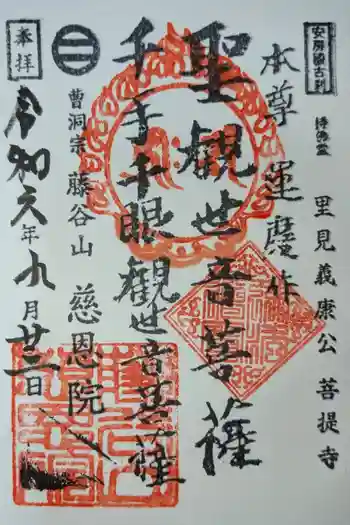 安房國古刹
持佛堂 里見義康公 菩提寺
本尊 運慶作
聖観世音菩薩
千手千眼観世音菩薩
曹洞宗 藤谷山 慈恩院
奉拝
令和六年九月廿三日